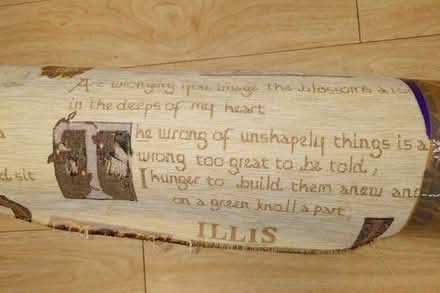 Are wronging your image the blossoms a ro
in the deeps of my heart
The wrong of unshapely things is a
wrong too great to be told,
I hunger to build them anew and
on a green knoll apart,
ILLIS
d sit